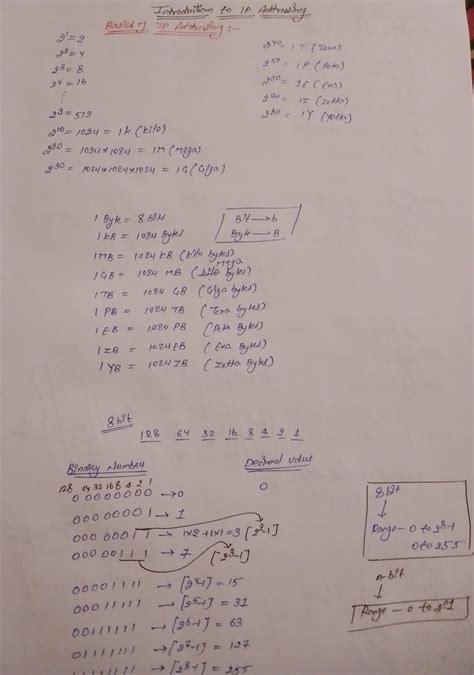 Introduction to IP Addressing
Basics of IP Addressing:-
2¹ = 2
2² = 4
2³ = 8
2⁴ = 16
⋮
2⁹ = 512
2¹⁰ = 1024 = 1K (Kilo)
2²⁰ = 1024*1024 = 1M (Mega)
2³⁰ = 1024*1024*1024 = 1G (Giga)
2⁴⁰ = 1T (Tera)
2⁵⁰ = 1P (Peta)
2⁶⁰ = 1E (Exa)
2⁷⁰ = 1Z (Zetta)
2⁸⁰ = 1Y (Yotta)
1 Byte = 8 bits
1 KB = 1024 Bytes
1MB = 1024 KB (kilo bytes)
1GB = 1024 MB (Mega bytes)
1TB = 1024 GB (Giga bytes)
1 PB = 1024 TB (Tera bytes)
1 EB = 1024 PB (Peta Bytes)
1 ZB = 1024 EB (Exa Bytes)
1 YB = 1024 ZB (Zetta Bytes)
Bit → b
Byte → B
8 bit
128 64 32 16 8 4 2 1
Binary Number Decimal value
128 64 32 16 8 4 2 1
0 0 0 0 0 0 0 0 → 0 0
0 0 0 0 0 0 0 1 → 1
0 0 0 0 0 0 1 1 → 1×2+1×1=3 [2²-1]
0 0 0 0 0 1 1 1 → 7 [2³-1]
0 0 0 0 1 1 1 1 → [2⁴-1] = 15
0 0 0 1 1 1 1 1 → [2⁵-1] = 31
0 0 1 1 1 1 1 1 → [2⁶-1] = 63
0 1 1 1 1 1 1 1 → [2⁷-1] = 127
1 1 1 1 1 1 1 1 → [2⁸-1] = 255
8 bit
↓
Range - 0 to 2⁸-1
0 to 255
n-bit
↓
Range - 0 to 2ⁿ-1